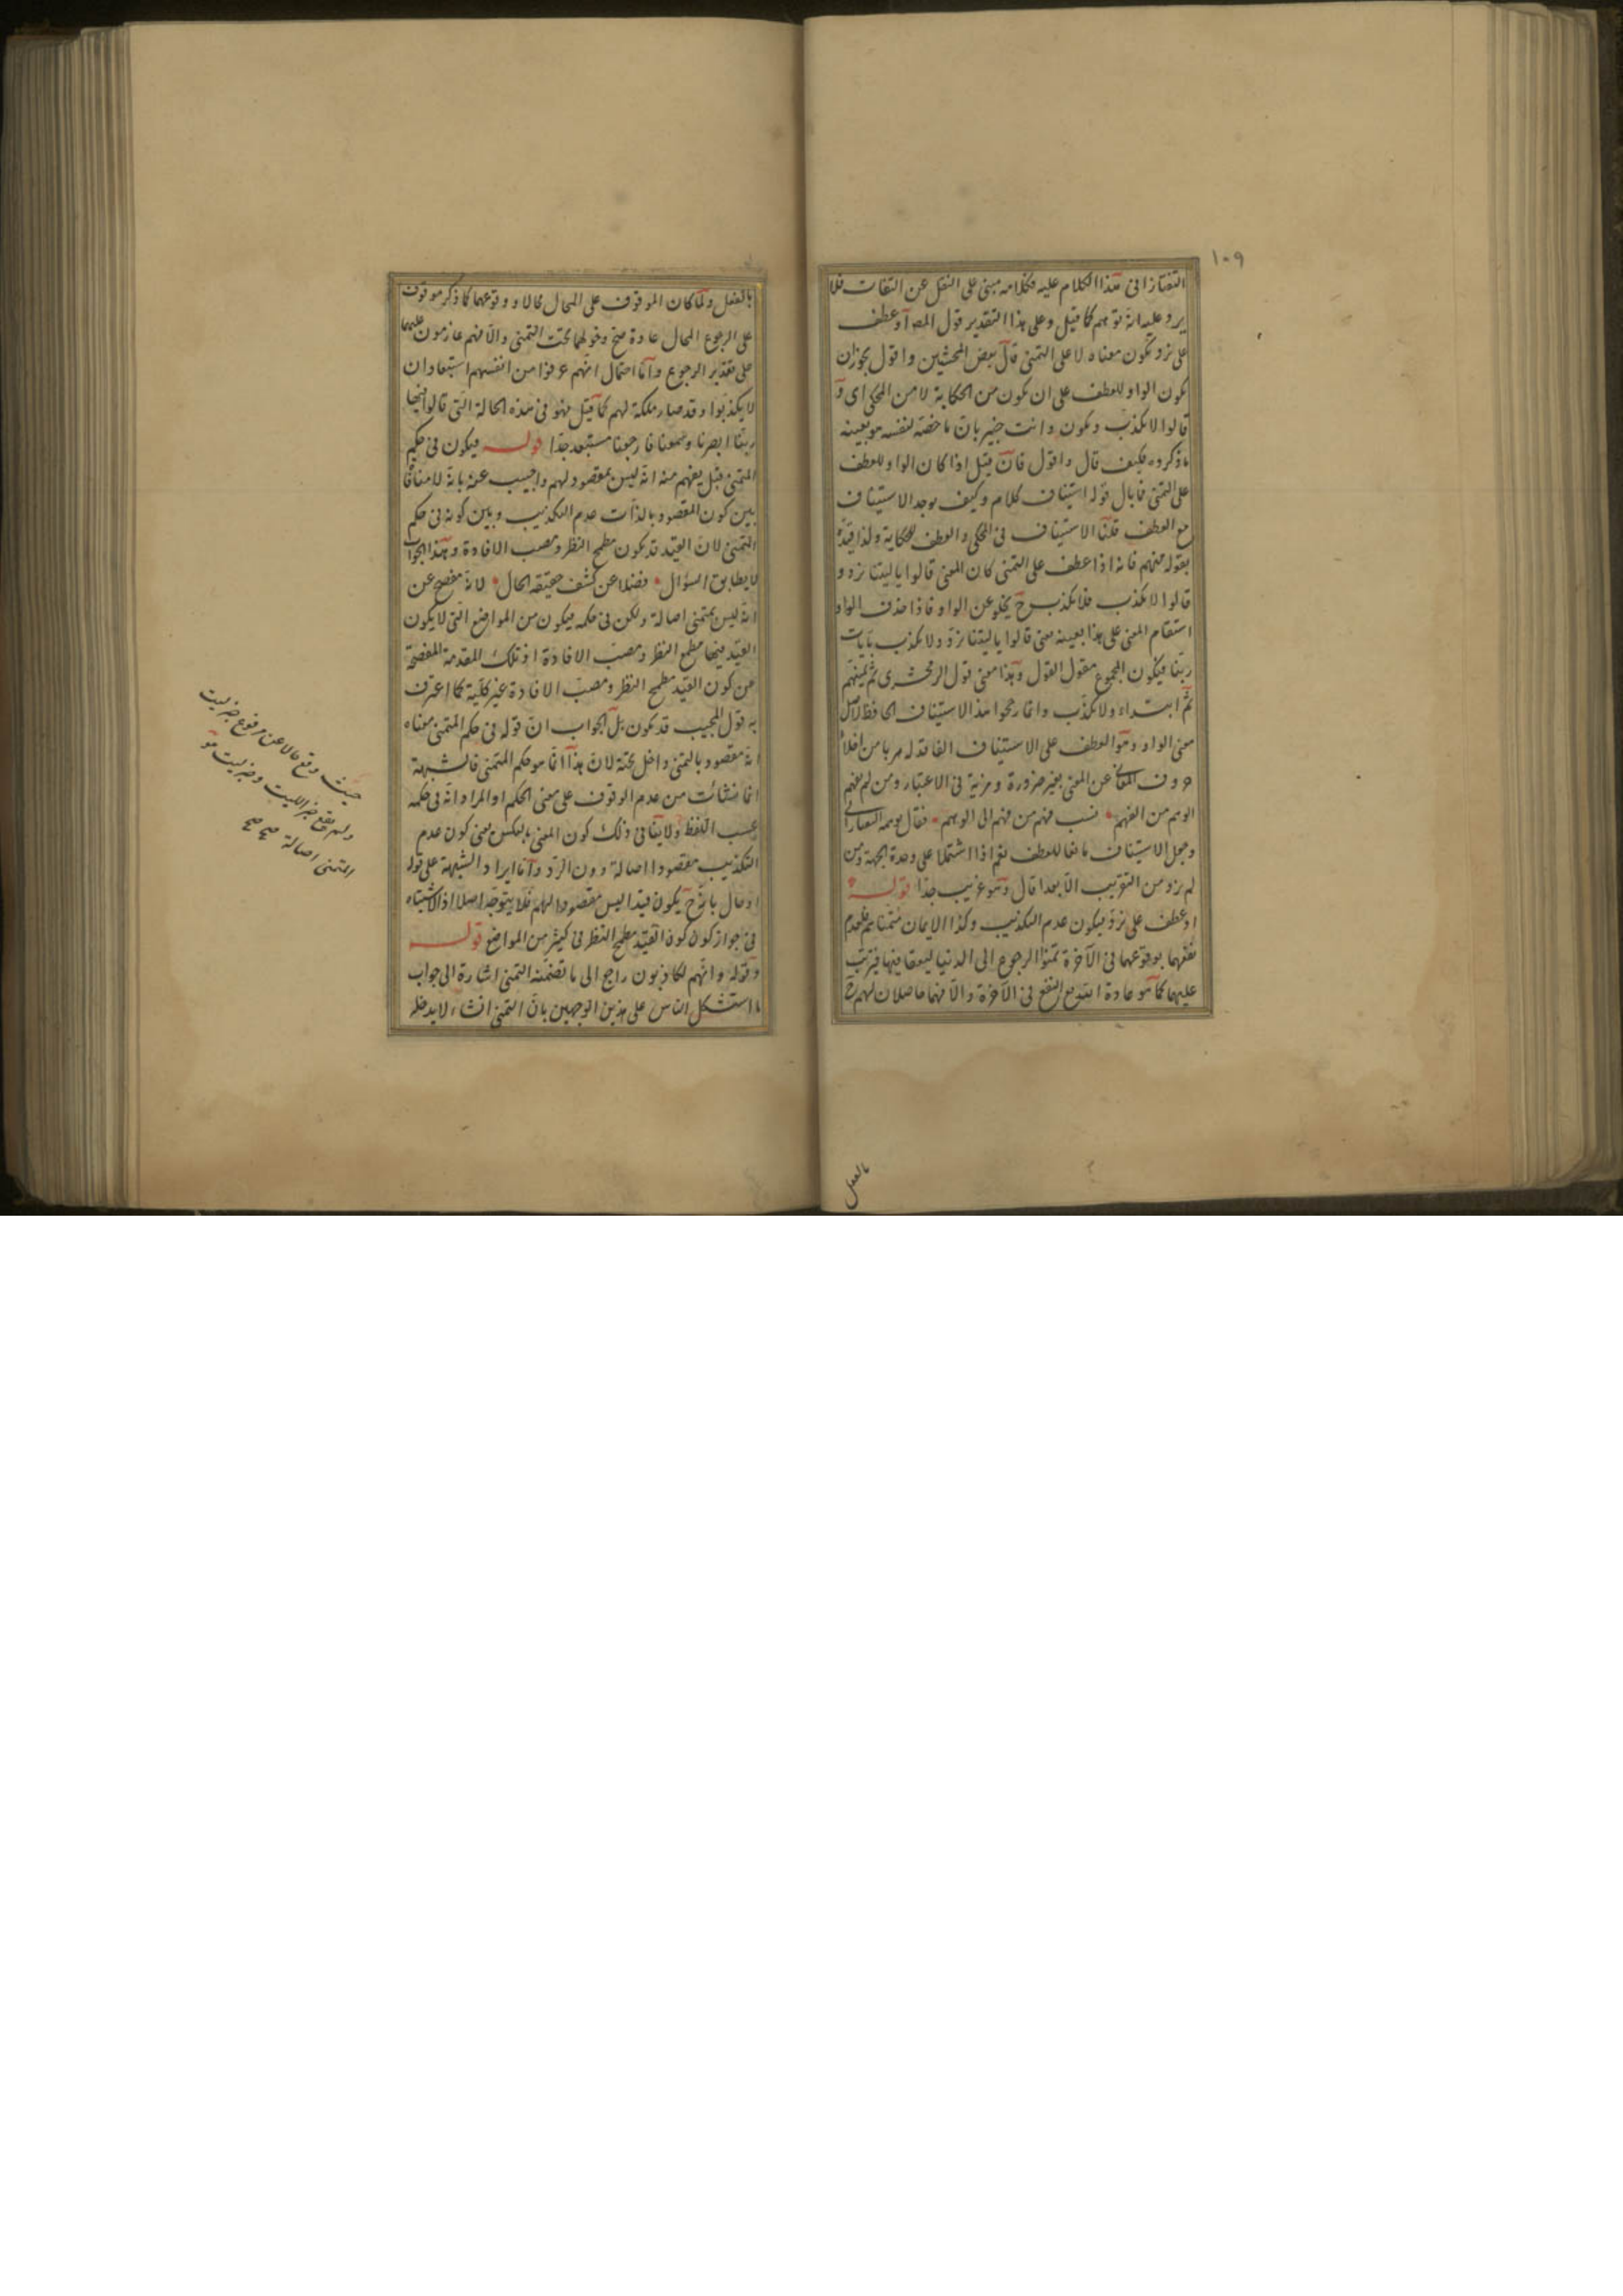 ١٠٩
التفتازانى هذا الكلام عليه فكلامه مبنى على النقل عن الثقات فلا
يرد عليه انه توهم كما قيل وعلى هذا التقدير قول المص او عطف
على نرد ويكون معناه لا على التمنى قال بعض المحشين واقول يجوز ان
يكون الواو للعطف على ان يكون من الحكاية لا من المحكى اى و
قالوا لا نكذب ونكون وانت خبير بان ما خصه لنفسه هو بعينه
ما ذكروه فكيف قال واقول فان قيل اذا كان الواو للعطف
على التمنى فما بال قوله استيناف كلام وكيف يوجد الاستيناف
مع العطف قلنا الاستيناف فى المحكى والعطف للحكاية ولذا قيده
بقوله منهم فانه اذا عطف على التمنى كان المعنى قالوا يا ليتنا نرد و
قالوا لا نكذب فلا نكذب ح يخلو عن الواو فاذا حذف الواو
استقام المعنى على هذا بعينه معنى قالوا يا ليتنا نرد ولا نكذب بايات
ربنا فيكون المجموع مقول القول وهذا معنى قول الزمخشرى ثم تمنيهم
ثم ابتداء ولا نكذب وانما رجحوا هذا الاستيناف الحافظ لاصل
معنى الواو وهو العطف على الاستيناف الفاقد له هربا من اخلاء
حروف المعانى عن المعنى بغير ضرورة ومزية فى الاعتبار ومن لم يفهم
الوهم من الفهم نسب فهم من فهم الى الوهم فقال
وجعل الاستيناف مانعا للعطف نعم اذا اشتملا على وحدة الجهة ومن
لم يزد من التقريب الا بعدا قال وهو غريب جدا قوله
او عطف على نرد فيكون عدم التكذيب وكذا الايمان متمناهم فلعدم
نفعهما بوقوعهما فى الآخرة تمنوا الرجوع الى الدنيا ليوقعا فيها فيترتب
عليهما كما هو عادة النفع فى الآخرة والا فهما حاصلان لهم ح
بالفعل
بالفعل ولما كان الموقوف على المحال محالا ووقوعهما كما ذكر موقوف
على الرجوع المحال عادة صح دخولهما تحت التمنى والا فهم عازمون عليهما
على تقدير الرجوع واما احتمال انهم عرفوا من انفسهم استبعاد ان
لا يكذبوا وقد صار ملكة لهم كما قيل فهو فى هذه الحالة التى قالوا فيها
ربنا ابصرنا وسمعنا فارجعنا مستبعد جدا قوله فيكون فى حكم
المتمنى قيل يفهم منه انه ليس بمقصود لهم واجيب عنه بانه لا منافاة
بين كون المقصود بالذات عدم التكذيب وبين كونه فى حكم
المتمنى لان القيد قد يكون مطمح النظر ومصب الافادة وهذا الجواب
لا يطابق السؤال فضلا عن كشف حقيقة الحال لانه مفصح عن
انه ليس بمتمنى اصالة ولكن فى حكمه فيكون من المواضع التى لا يكون
القيد فيها مطمح النظر ومصب الافادة اذ تلك المقدمة المفصحة
عن كون القيد مطمح النظر ومصب الافادة غير كلية كما اعترف
به قول المجيب قد يكون بل الجواب ان قوله فى حكم المتمنى معناه
انه مقصود بالتمنى وداخل تحته لان هذا انما هو حكم المتمنى فالشبهة
انما نشأت من عدم الوقوف على معنى الحكم او المراد انه فى حكمه
بحسب اللفظ ولا ينافى ذلك كون المعنى بالعكس يعنى كون عدم
التكذيب مقصودا اصالة دون الرد واما ايراد الشبهة على قوله
او حال بانه ح يكون قيدا ليس مقصودا لهم فلا يتوجه اصلا اذ لا اشتباه
فى جواز كون كون القيد مطمح النظر فى كثير من المواضع قوله
وقوله وانهم لكاذبون راجع الى ما تضمنه التمنى اشارة الى جواب
ما استشكل الناس على هذين الوجهين بان التمنى انشاء لا يدخله
حيث وقع حالا عن مرفوع خبر ليت
ولم يقع خبر الليت وخبر ليت هو
المتمنى اصالة صح صح